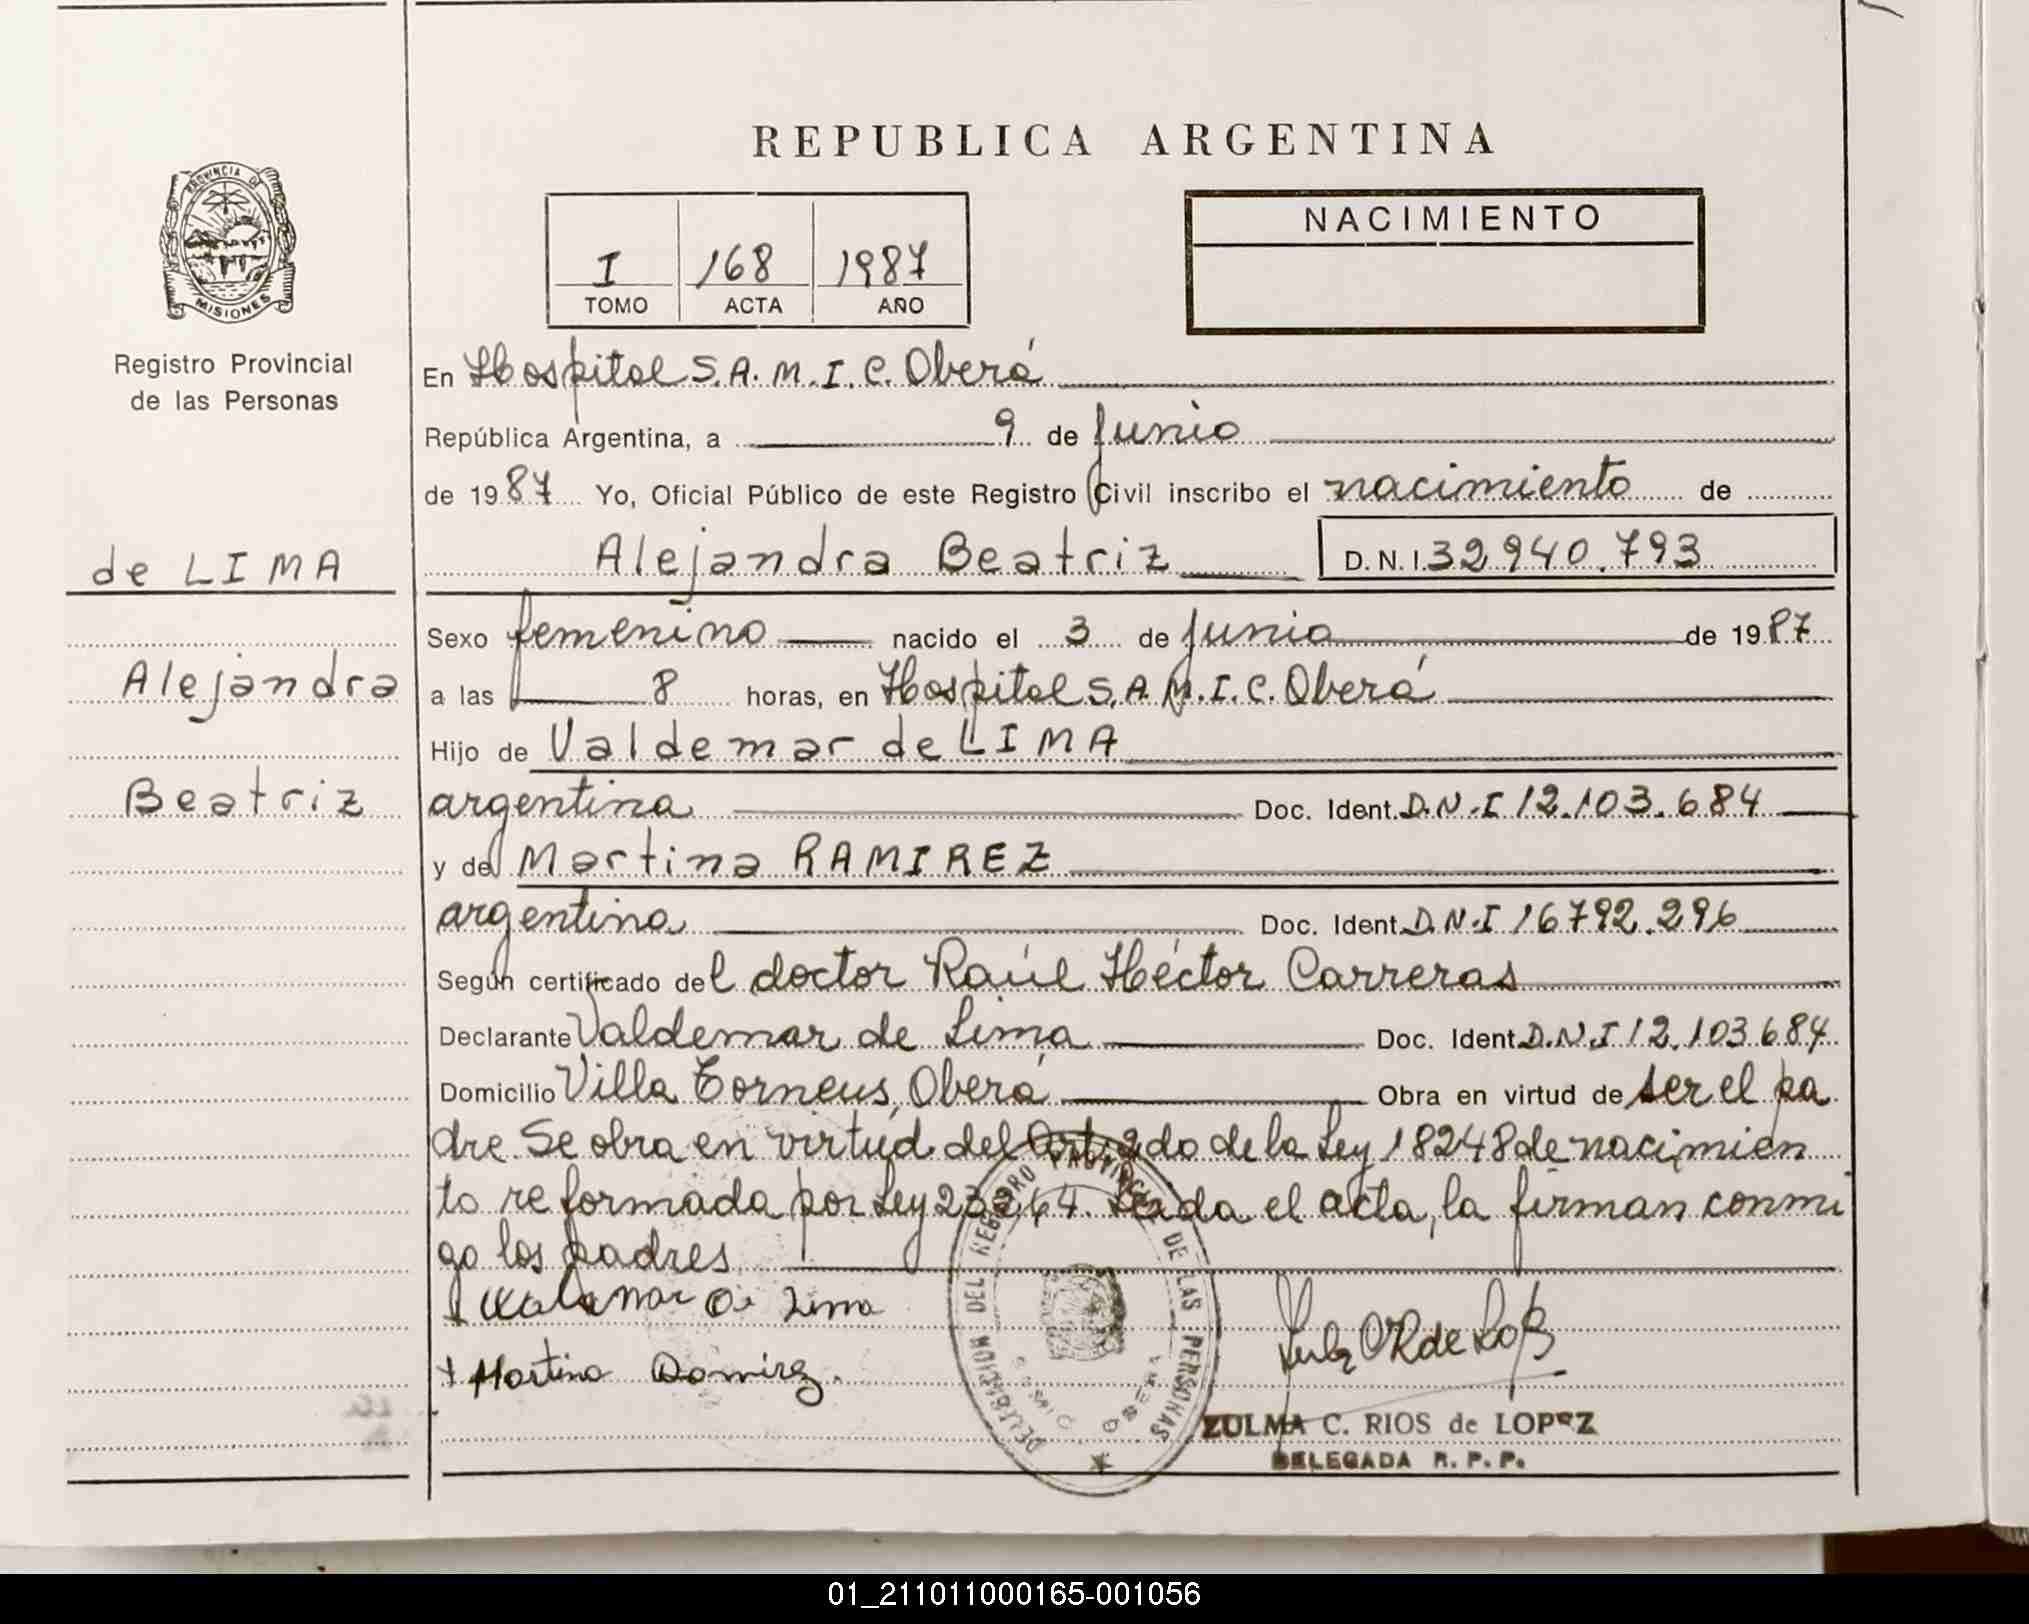 REPUBLICA ARGENTINA
PROVINCIA DE
MISIONES
Registro Provincial
de las Personas
I 168 1987
TOMO ACTA AÑO
NACIMIENTO
En Hospital S.A.M.I.C. Oberá
República Argentina, a 9 de Junio
de 1987 Yo, Oficial Público de este Registro Civil inscribo el nacimiento de
Alejandra Beatriz D.N.I. 32940.793
de LIMA
Alejandra
Beatriz
Sexo femenino nacido el 3 de Junio de 1987
a las 8 horas, en Hospital S.A.M.I.C. Oberá
Hijo de Valdemar de LIMA
argentina Doc. Ident. D.N.I 12.103.684
y de Martina RAMIREZ
argentina Doc. Ident. D.N.I 16792.296
Según certificado del doctor Raúl Héctor Carreras
Declarante Valdemar de Lima Doc. Ident. D.N.I 12.103684
Domicilio Villa Torneus, Oberá Obra en virtud de ser el pa
dre. Se obra en virtud del Art. 2do de la Ley 18248 de nacimien
to reformada por Ley 23264. Leida el acta, la firman conmi
go los padres
Martina Ramirez.
DELEGACION DEL REGISTRO PROVINCIAL DE LAS PERSONAS
OBERA
ZULMA C. RIOS de LOPEZ
DELEGADA R. P. P.
01_211011000165-001056